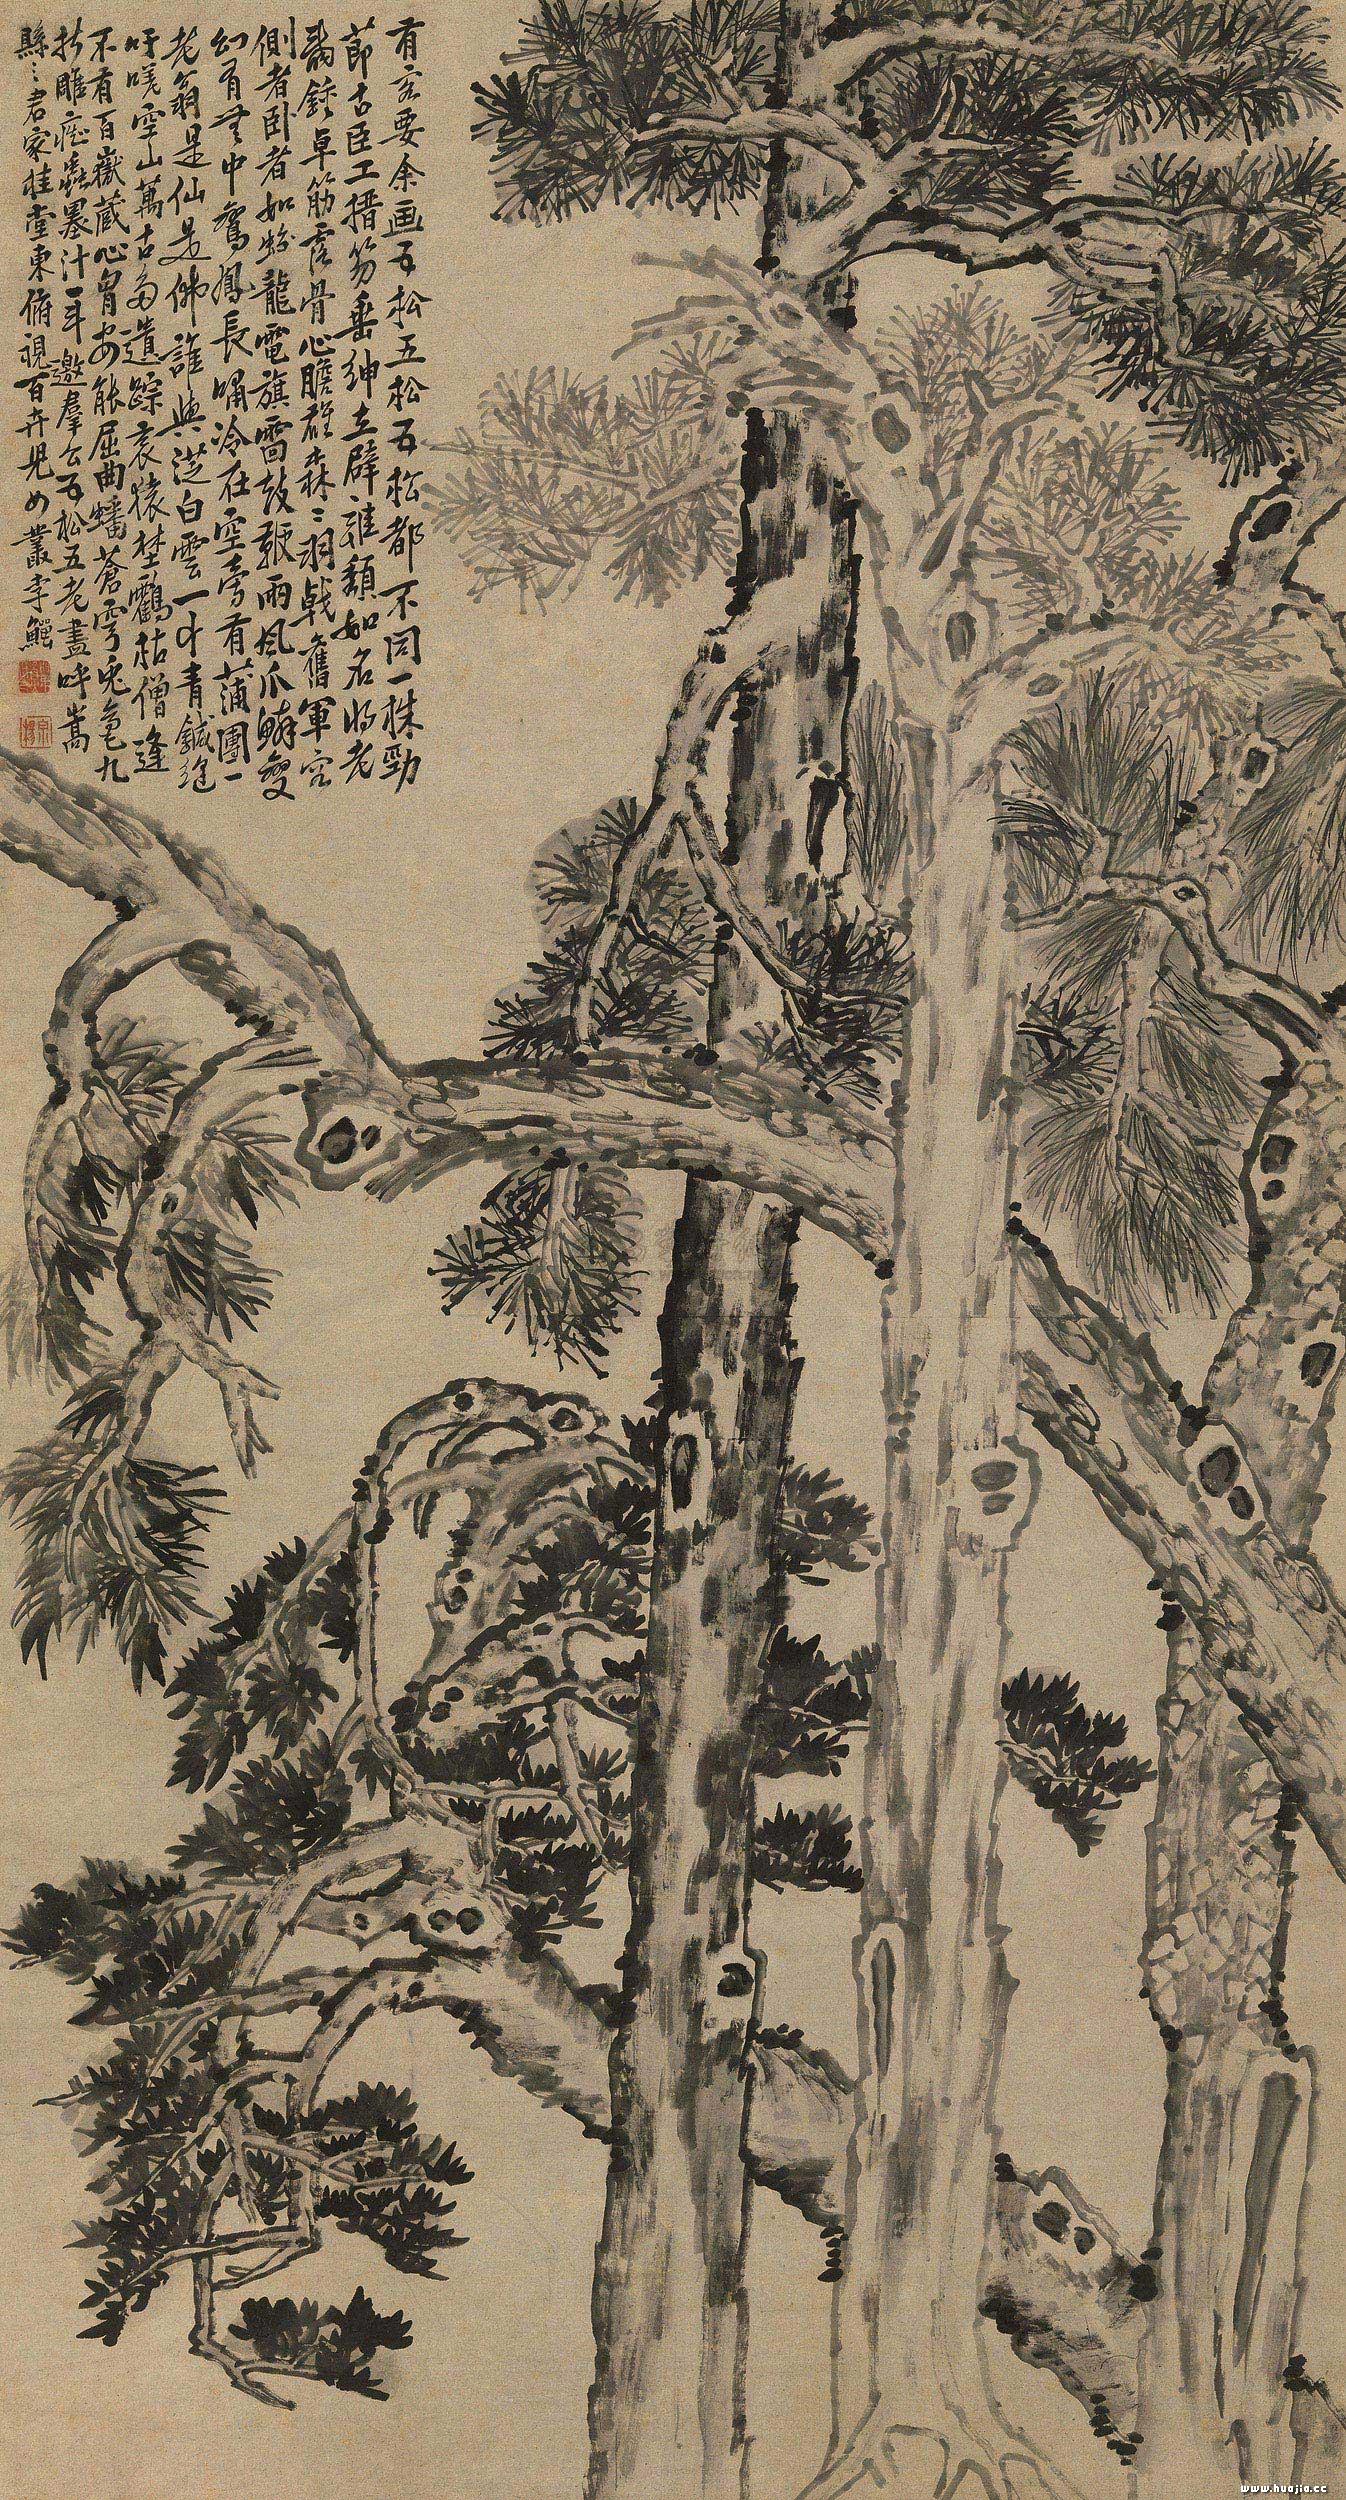 有客要余画五松五松五松都不同一株勁
節古臣工搢笏垂紳立辟雍頹如名將老
龍鍾卓筋露骨心膽雄森森羽戟奮軍容
側者臥者如蛟龍電旗雷鼓鞭雨風爪鱗變
幻有無中鸞鳳長嘯冷在空旁有蒲團一
老翁是仙是佛誰與從白雲一片青鍼縫
吁嗟空山萬古多遺蹤哀猿埜鸛枯僧逢
不有百嶽藏心胷安能屈曲蟠蒼穹兔毫九
折雕癡蟲墨汁一斗邀群公五松五老盡呼嵩
懸之君家桂堂東俯視百卉兒女叢李鱓
www.huajia.cc